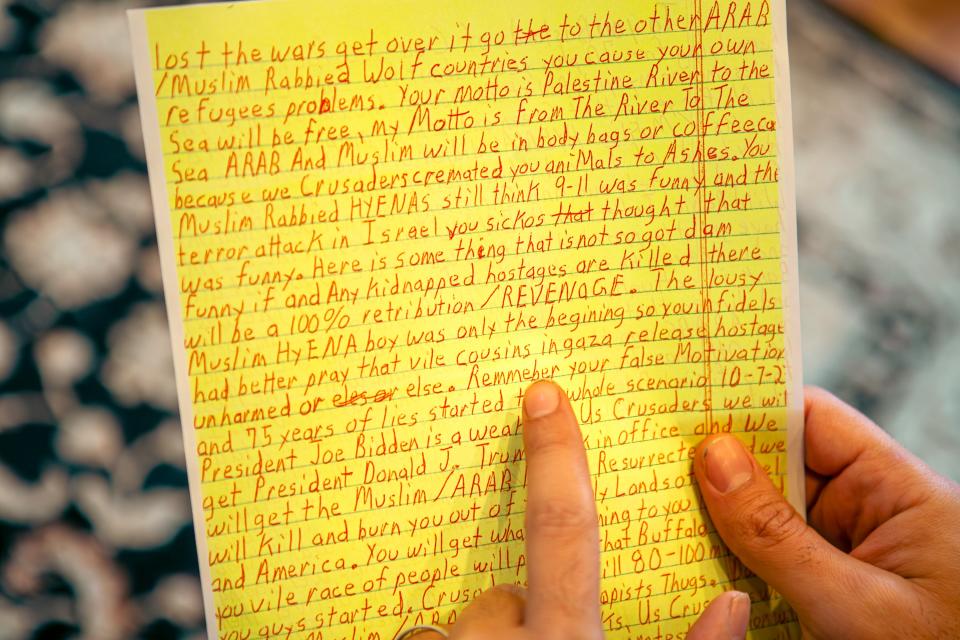 lost the wars get over it go the to the other ARAB
/Muslim Rabbied Wolf countries you cause your own
refugees problems. Your motto is Palestine River to the
Sea will be free, my Motto is From The River To The
Sea ARAB And Muslim will be in body bags or coffee
because we Crusaders cremated you aniMals to Ashes. You
Muslim Rabbied HYENAS still think 9-11 was funny and the
terror attack in Israel you sickos that thought that
was funny. Here is some thing that is not so got dam
funny if and Any kidnapped hostages are killed there
will be a 100% retribution /REVENAGE. The lousy
Muslim HyENA boy was only the begining so you infidels
had better pray that vile cousins in gaza release hostage
unharmed or else. Remmeber your false Motivation
and 75 years of lies started whole scenario 10-7-2
President Joe Bidden is a Us Crusaders we will
get President Donald J. in office and We
will get the Muslim /ARAB Resurrecte
will kill and burn you out of Lands of
and America. You will get ning to you
you vile race of people will that Buffalo
you guys started. ill 80-100
Muslim Thugs.
Ks. Us